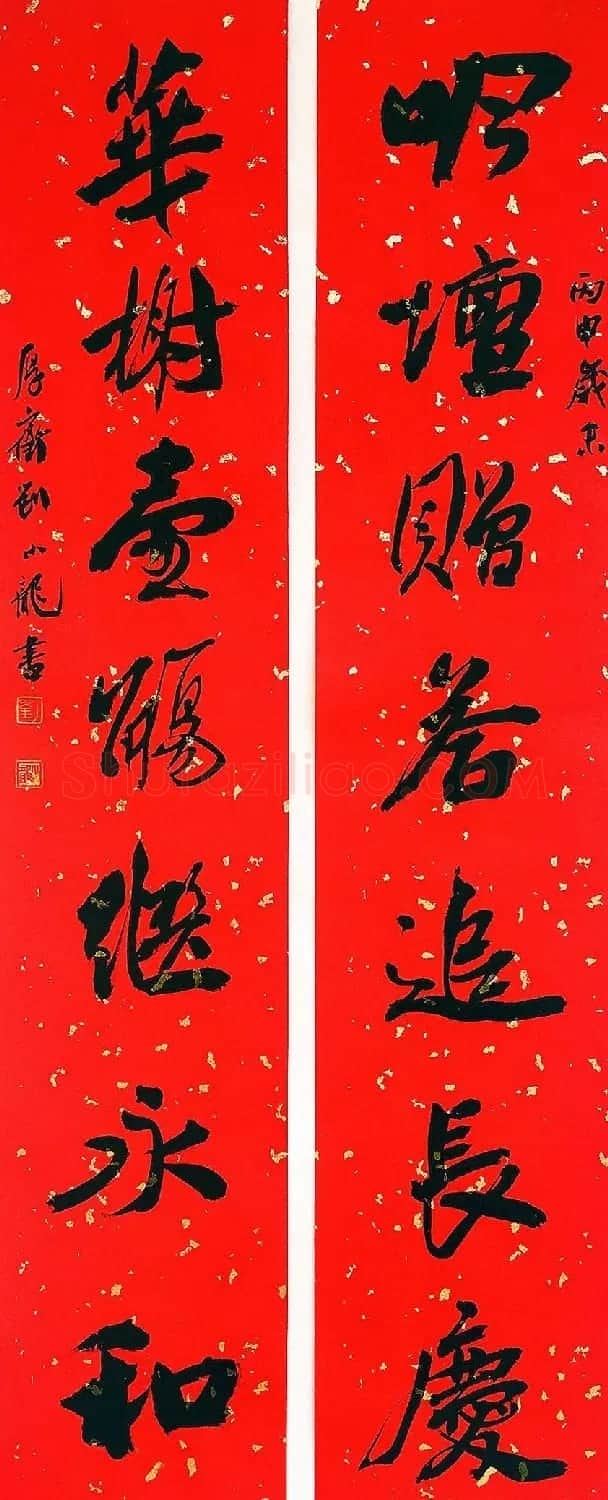 吟壇贈答追長慶
丙申歲末
華榭壺觴繼永和
厚齋劉小龍書
Shufaziliao.COM